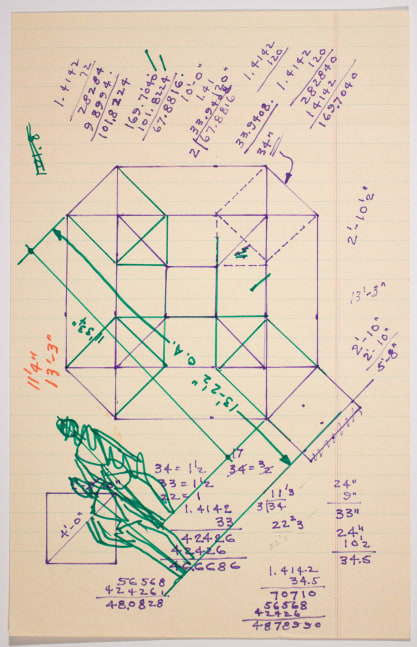 1.4142
72
28284
98994
101.8224
169.7040
101.8224
67.8816
10'-0"
1.41
33.9408
2 67.8816
1.4142
120
33.9408
34"
1.4142
120
282840
14142
169.7040
2'-10½"
13'-3"
2'-10"
2'-10"
5'-8"
11'4"
13'-3"
O.A.
13'-2½"
17
34 = 1½
34 = 3/2
33 = 1½
22 = 1
1.4142
33
42426
42426
46.6686
11⅓
3 34
22⅔
24"
9"
33"
24"
10½
34.5
4'-0"
56568
424261
48.0828
1.4142
34.5
70710
56568
42426
4878990